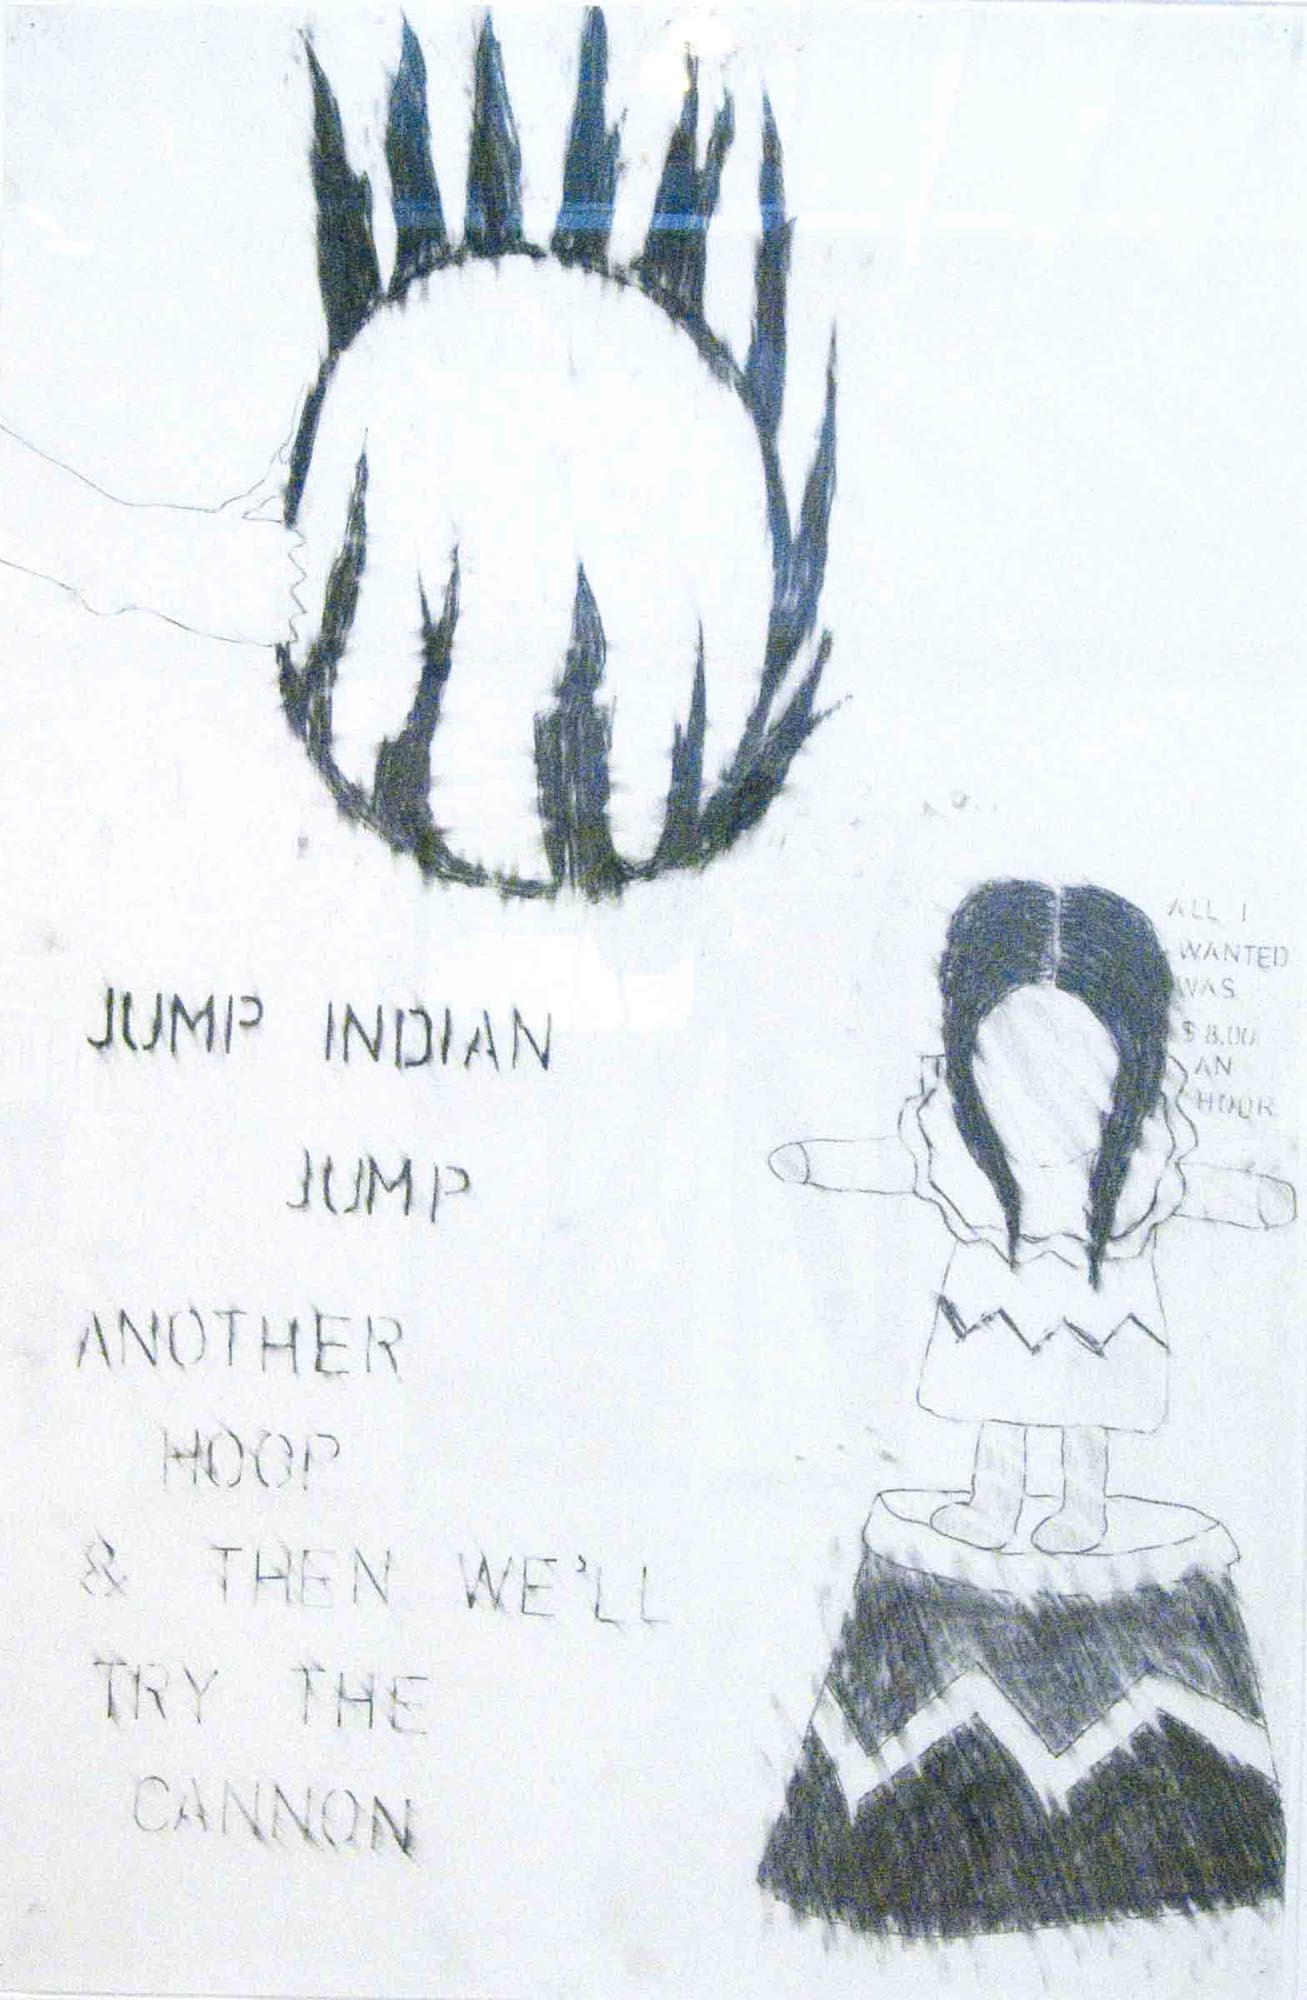 JUMP INDIAN
JUMP
ANOTHER
HOOP
& THEN WE'LL
TRY THE
CANNON
ALL I
WANTED
WAS
$8.00
AN
HOUR